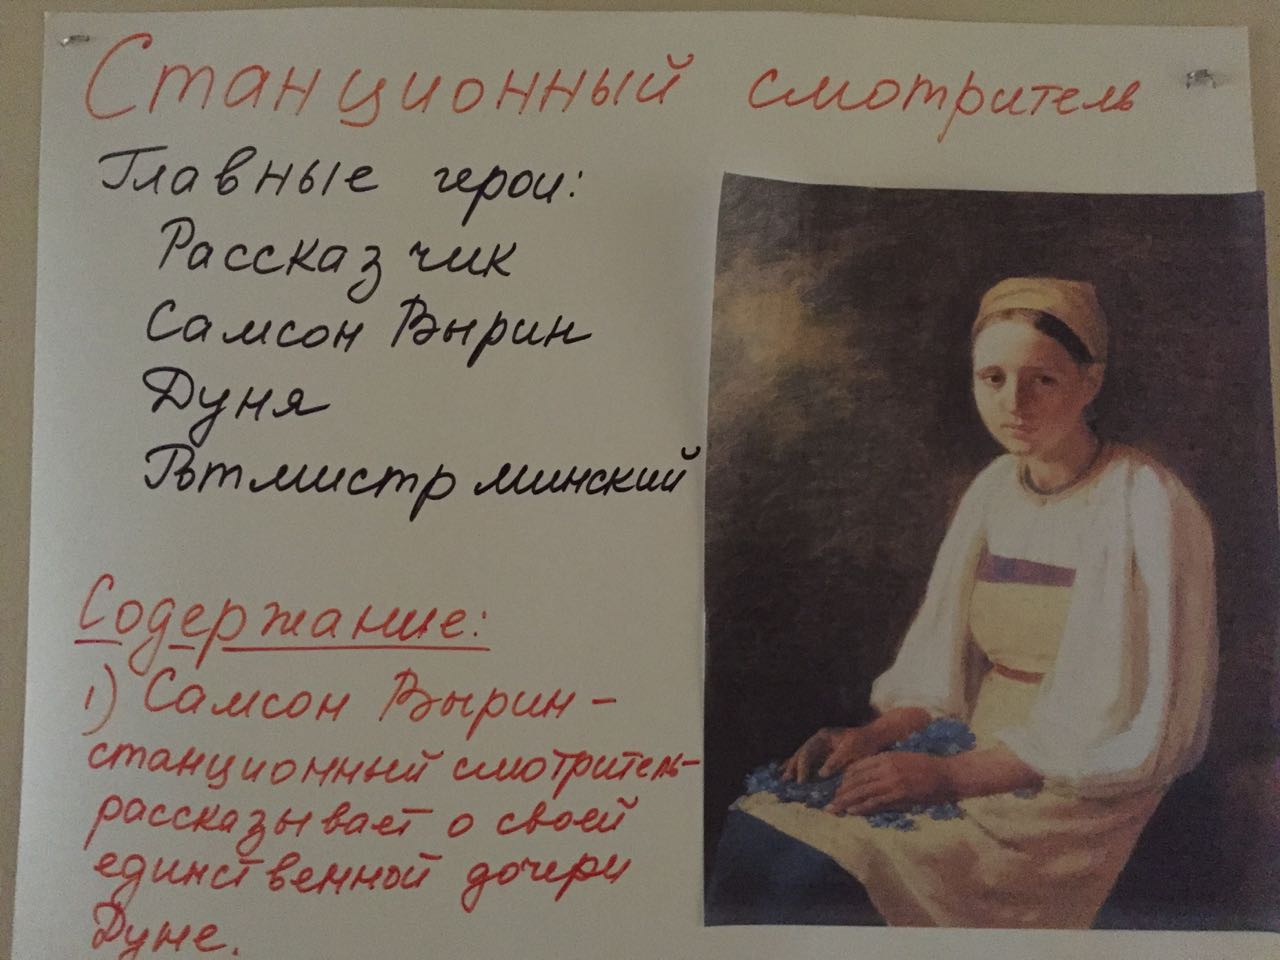 Станционный смотритель
Главные герои:
Рассказчик
Самсон Вырин
Дуня
Ротмистр минский
Содержание:
1) Самсон Вырин -
станционный смотритель-
рассказывает о своей
единственной дочери
Дуне.